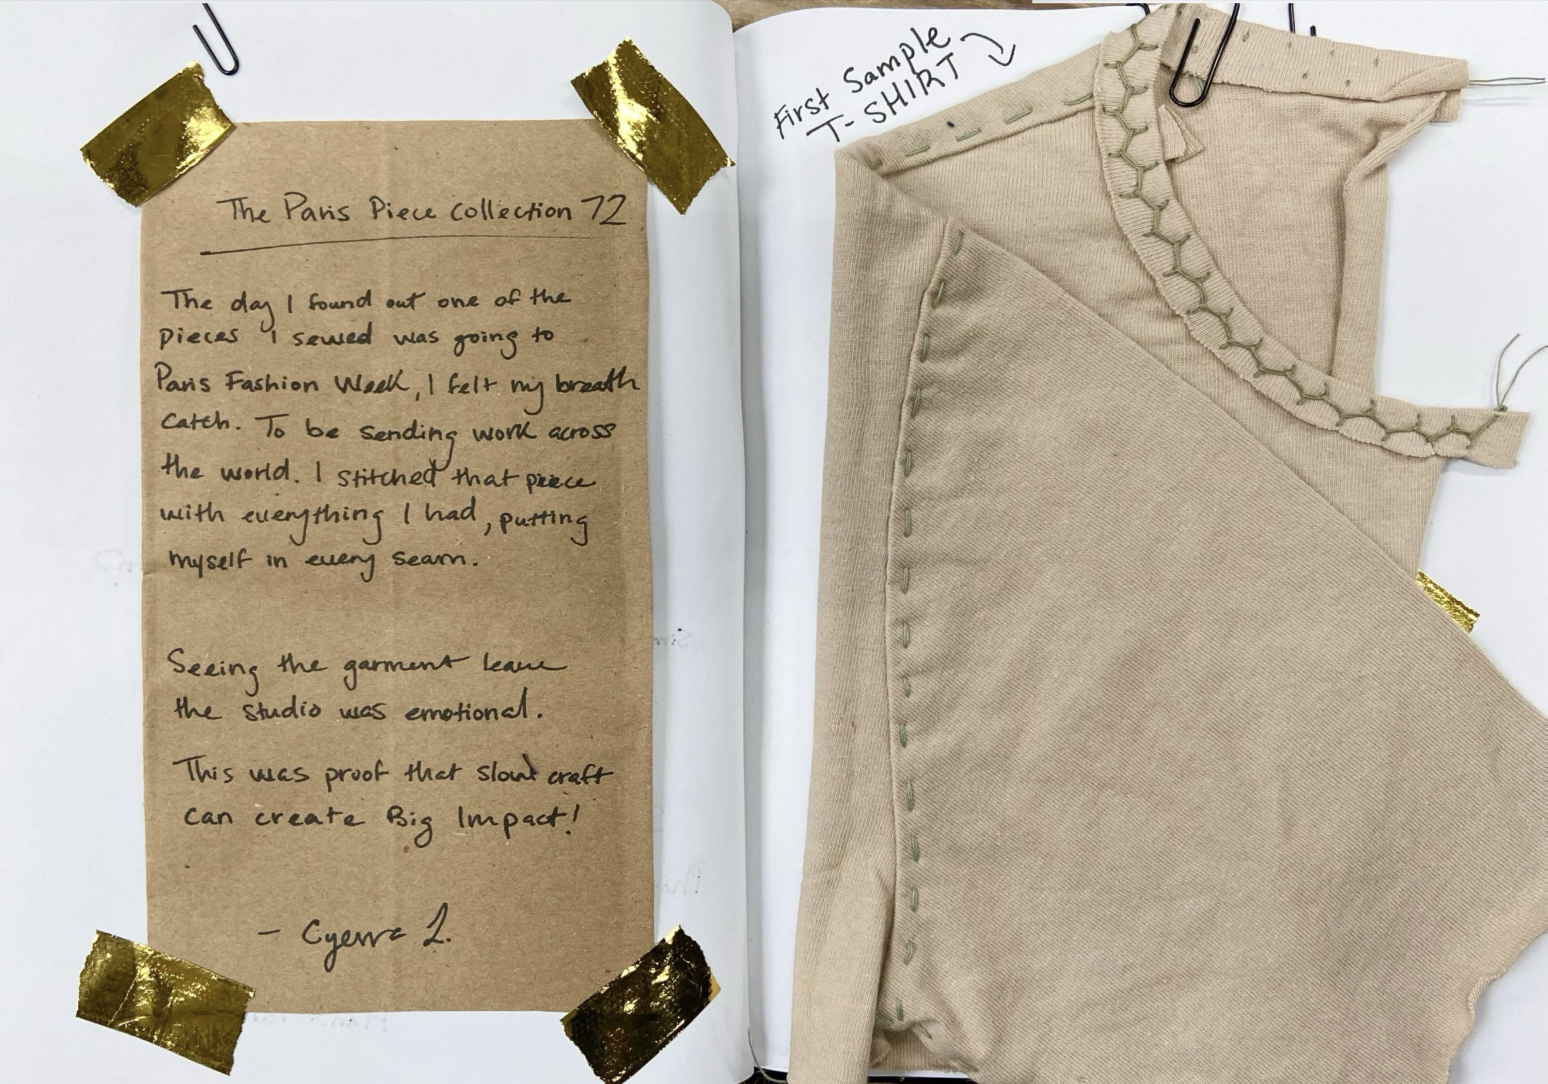 The Paris Piece Collection 72
The day I found out one of the
pieces I sewed was going to
Paris Fashion Week, I felt my breath
catch. To be sending work across
the world. I stitched that piece
with everything I had, putting
myself in every seam.
Seeing the garment leave
the studio was emotional.
This was proof that slow craft
can create Big Impact!
- Cyerra L.
First Sample
T-SHIRT